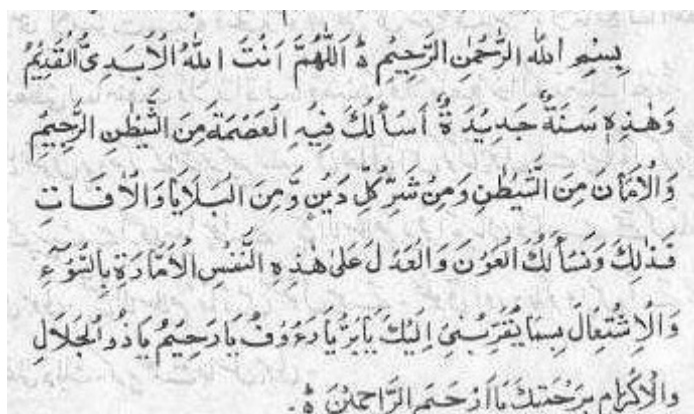 بِسْمِ اللهِ الرَّحْمٰنِ الرَّحِيْمِ ۝ اَللّٰهُمَّ اَنْتَ اللهُ الْاَبَدِىُّ الْقَدِيْمُ
وَهٰذِهٖ سَنَةٌ جَدِيْدَةٌ اَسْأَلُكَ فِيْهِ الْعَصْمَةَ مِنَ الشَّيْطٰنِ الرَّجِيْمِ
وَالْاَمَانَ مِنَ الشَّيْطٰنِ وَمِنْ شَرِّ كُلِّ دَيْنٍ وَّمِنَ الْبَلَايَا وَالْاٰفَاتِ
وَنَسْأَلُكَ الْعَوْنَ وَالْعَدْلَ عَلىٰ هٰذِهِ النَّفْسِ الْاَمَّارَةِ بِالسُّوْٓءِ
وَالْاِشْتِغَالَ بِمَا يُقَرِّبُنِىْ اِلَيْكَ يَا بَرُّ يَا رَءُوْفُ يَا رَحِيْمُ يَا ذُو الْجَلَالِ
وَالْاِكْرَامِ بِرَحْمَتِكَ يَا اَرْحَمَ الرَّاحِمِيْنَ ۝